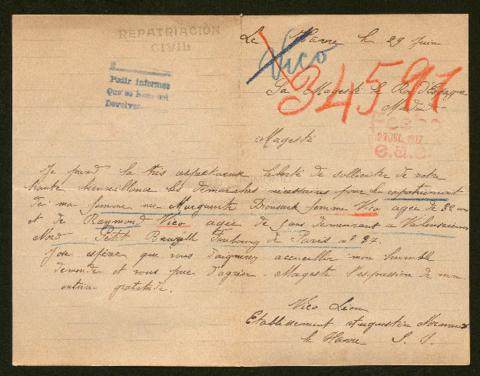 REPATRIACIÓN
CIVIL
Le Havre le 29 Juin
Vico
34591
Sa Majesté le Roi d'Espagne
Madrid
Pedir informes
Que se haga así
Devolver
Majesté
Je prend la très respectueuse liberté de solliciter de votre
haute bienveillance les démarches nécessaires pour le rapatriement
de ma femme née Marguerite femme Vico agée de 22 ans
et de Raymond Vico agée de 3 ans demeurant a Valenciennes
Nord Petit Faubourg de Paris nº 27.
J'ose espérer que vous daignerez accueillir mon humble
demande et vous prie d'agréer Majesté l'expression de mon
entière gratitude.
Vico Léon
Etablissement Augustin Normand
le Havre S. I.